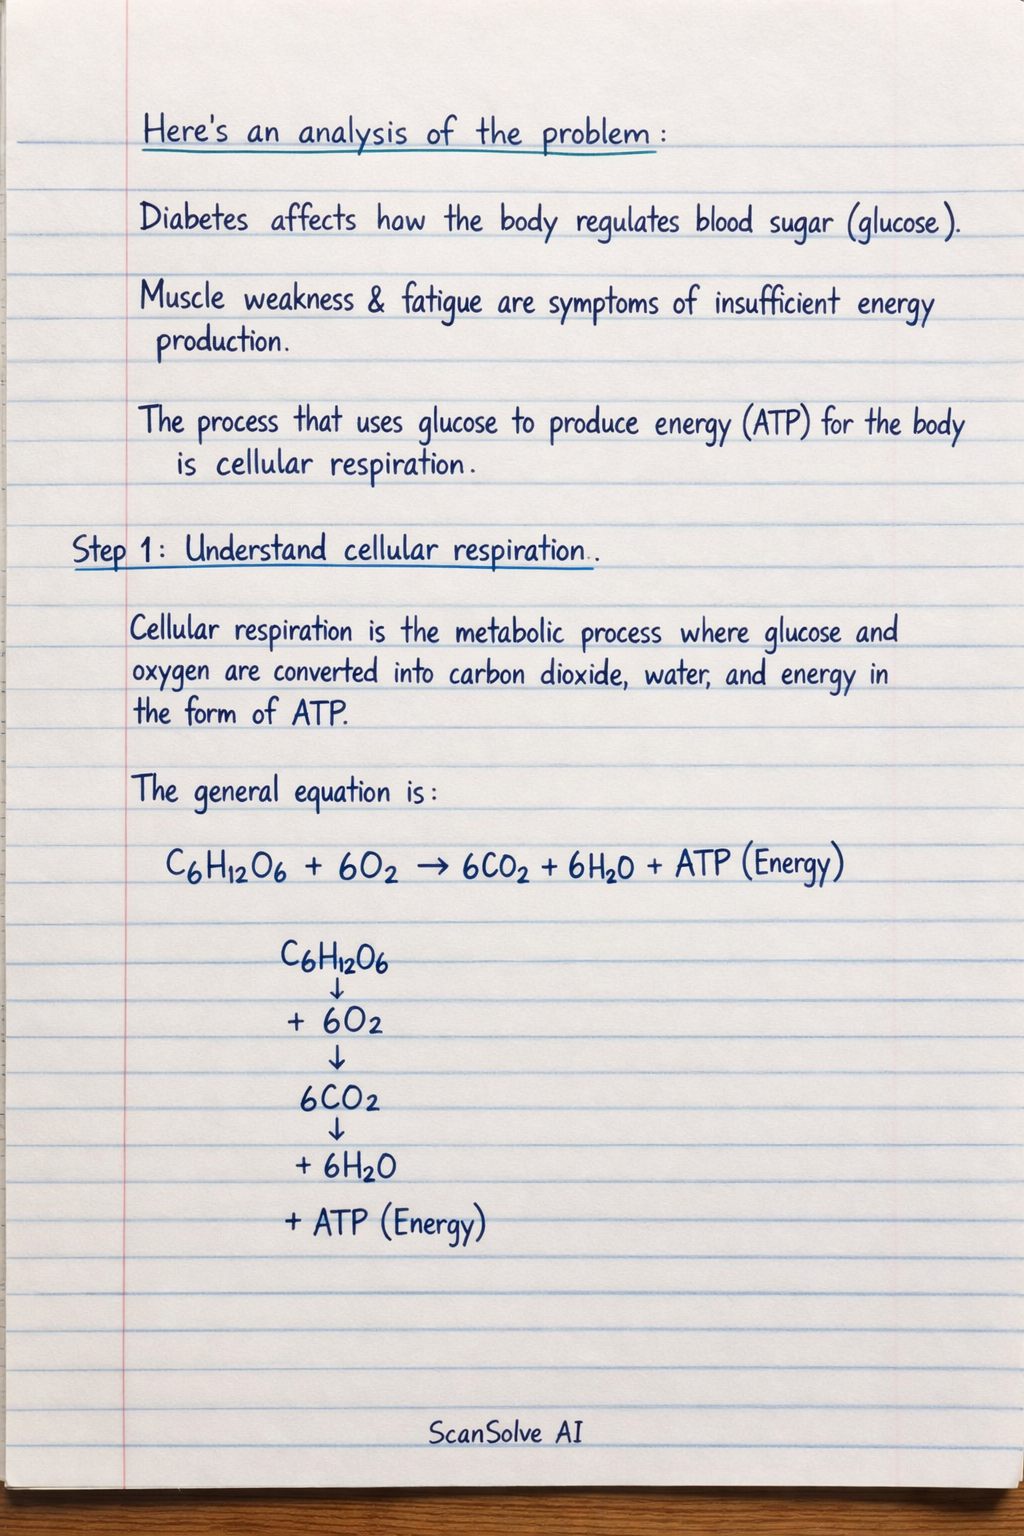 Here's an analysis of the problem:
Diabetes affects how the body regulates blood sugar (glucose).
Muscle weakness & fatigue are symptoms of insufficient energy
production.
The process that uses glucose to produce energy (ATP) for the body
is cellular respiration.
Step 1: Understand cellular respiration.
Cellular respiration is the metabolic process where glucose and
oxygen are converted into carbon dioxide, water, and energy in
the form of ATP.
The general equation is:
C₆H₁₂O₆ + 6O₂ → 6CO₂ + 6H₂O + ATP (Energy)
C₆H₁₂O₆
↓
+ 6O₂
↓
6CO₂
↓
+ 6H₂O
+ ATP (Energy)
ScanSolve AI